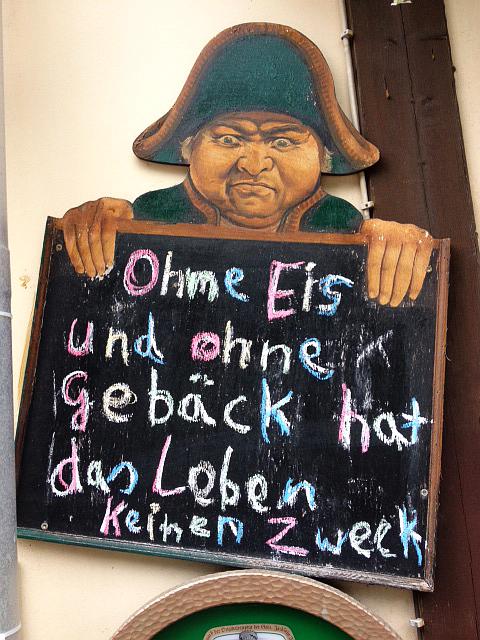 Ohme Eis
und ohne
Gebäck hat
das Leben
Keinen Zweck